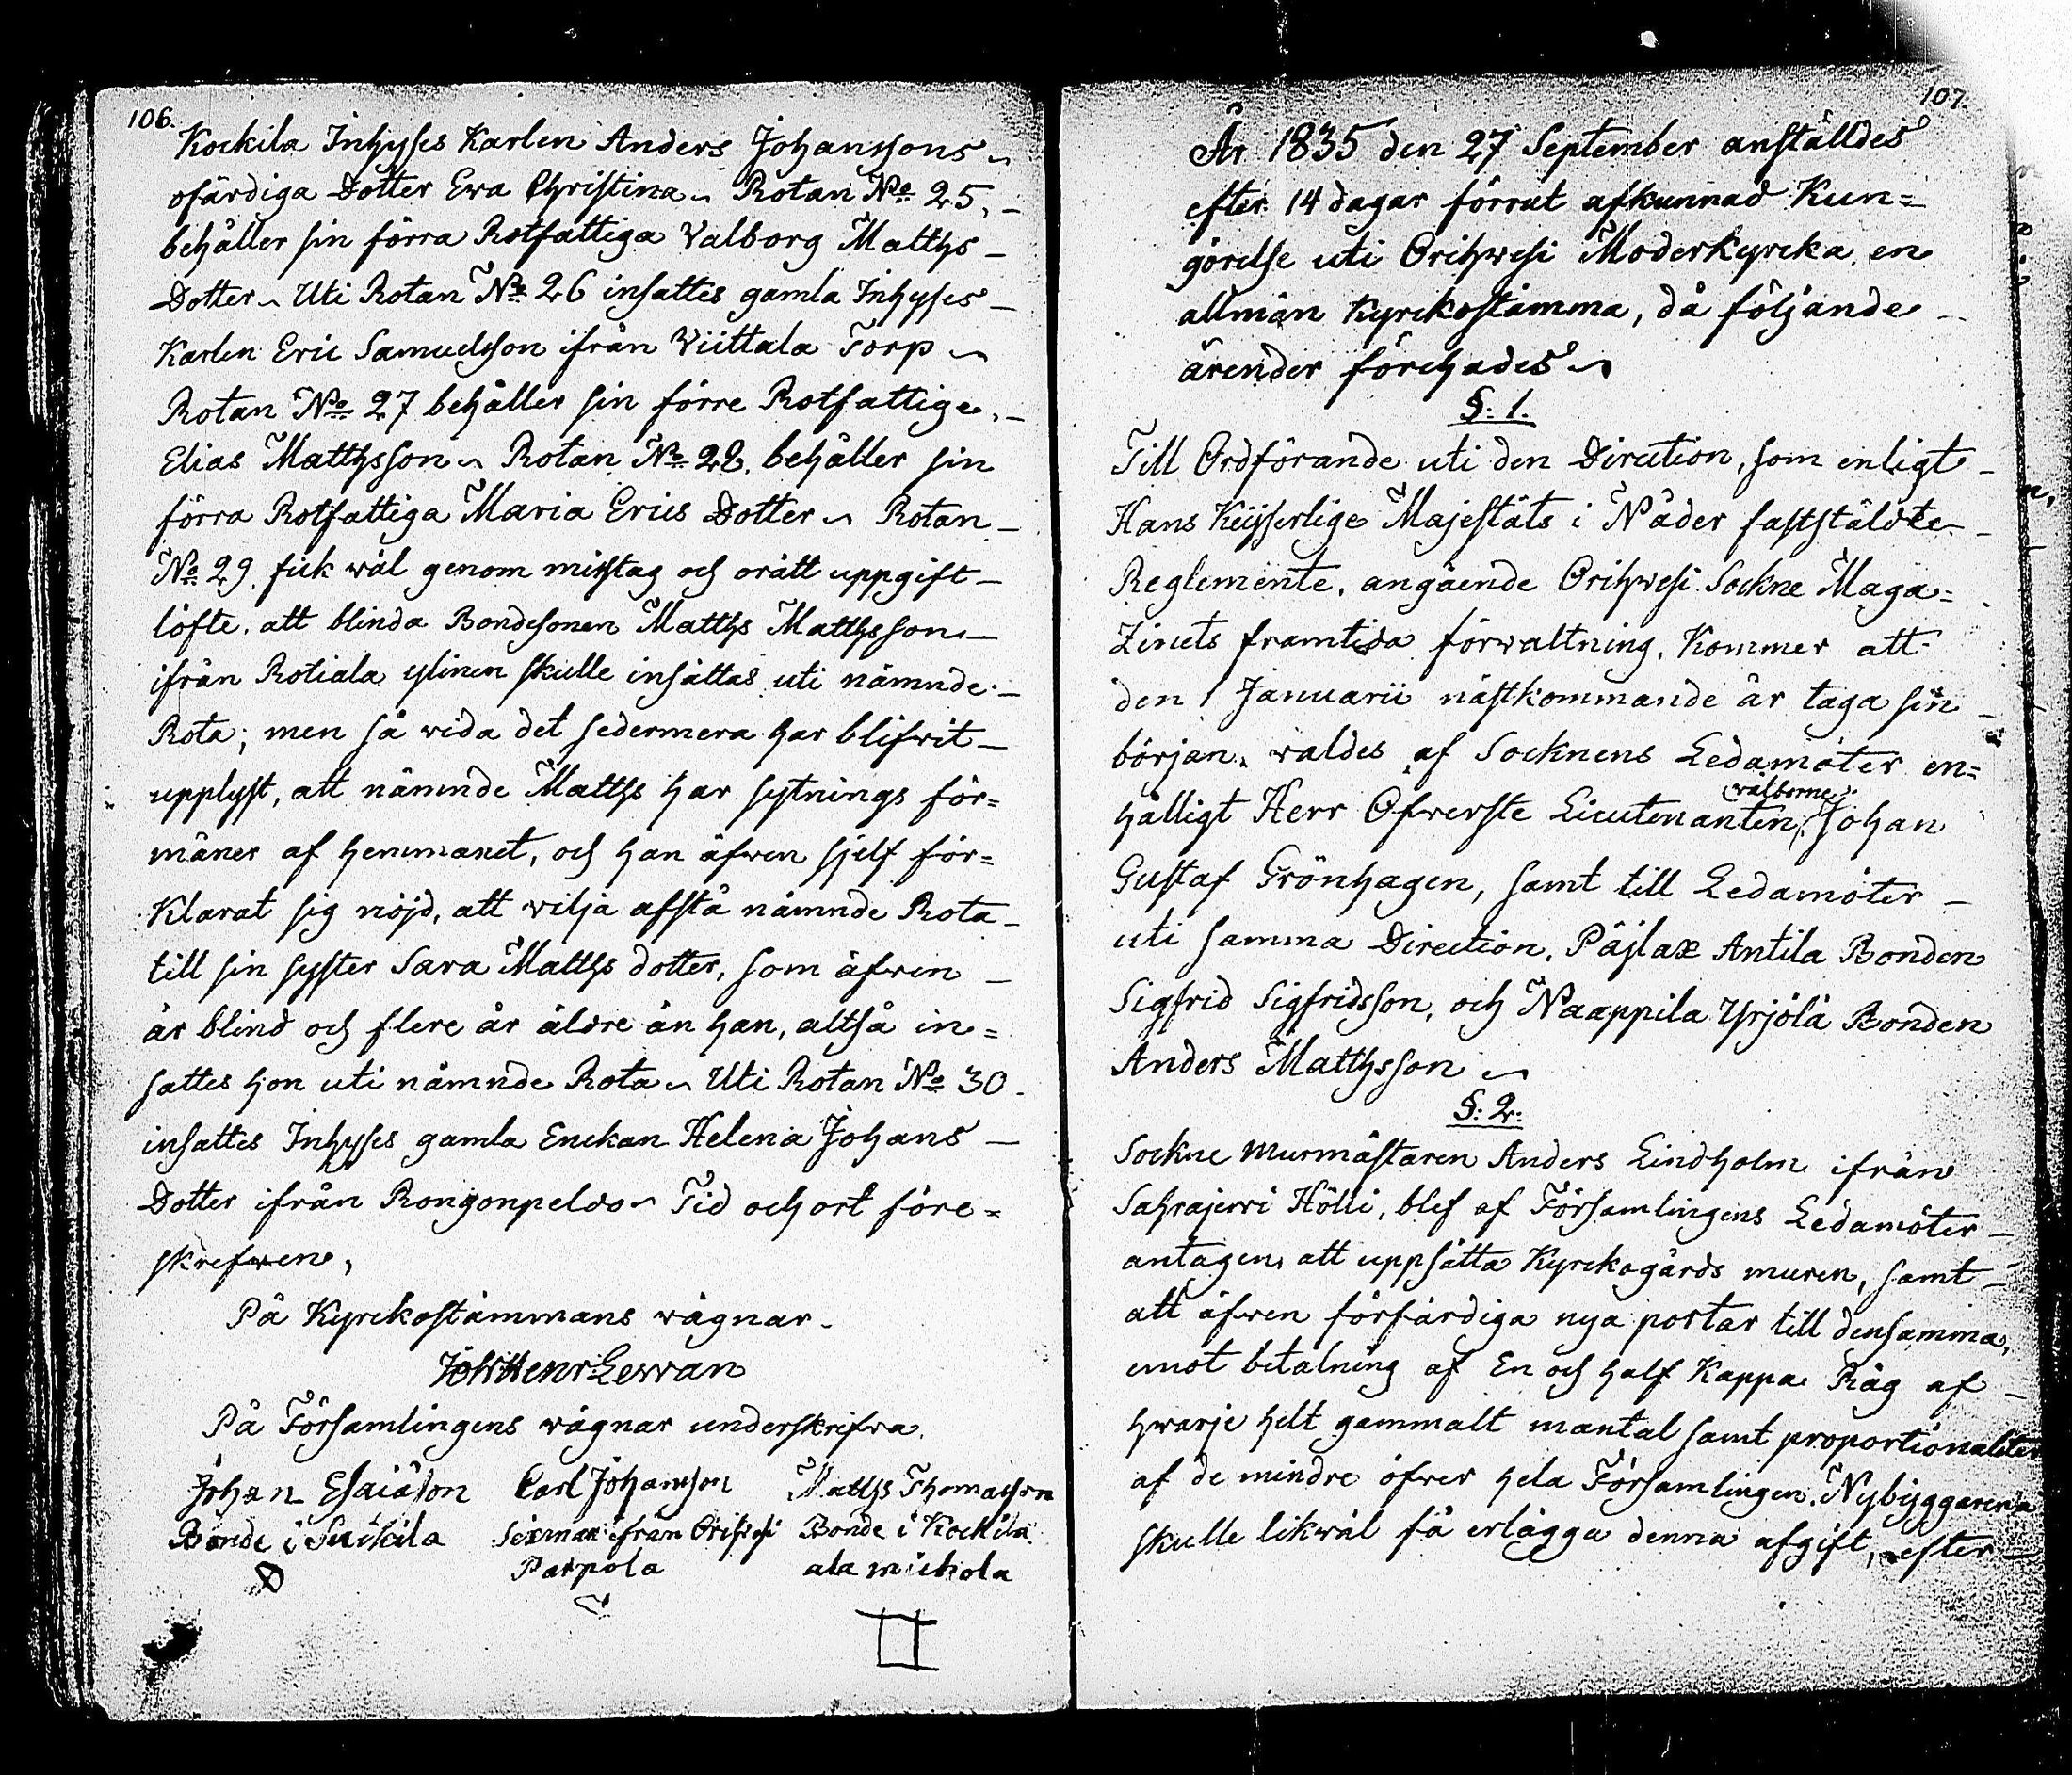 106.
Kockila Inhyses Karlen Anders Johanssons
ofärdiga Dotter Ewa Christina Rotan No 25,
behåller sin förra Rotfattiga Valborg Matths
Dotter Uti Rotan No 26 insattes gamla Inhyses
Karlen Eric Samuelsson ifrån Viittala Torp
Rotan No 27 behåller sin förre Rotfattige,
Elias Matthsson Rotan No 28. behåller sin
förra Rotfattiga Maria Erics Dotter Rotan
No 29. fick wäl genom misstag och orätt uppgift
löfte, att blinda Bondesonen Matths Matthsson
ifrån Rotiala ylinen skulle insättas uti nämnde
Rota; men så wida det sedermera har blifwit
upplyst, att nämnde Matths har sytnings för=
måner af hemmanet, och han äfwen sjelf för=
klarat sig nöjd, att wilja afstå nämnde Rota
till sin syster Sara Matths dotter, som äfwen
är blind och flere år äldre än han, altså in=
sattes hon uti nämnde Rota Uti Rotan No 30
insattes Inhyses gamla Enckan Helena Johans
Dotter ifrån Rongonpeldo Tid och ort före=
skrefwen,
På Kyrckostämmans wägnar
Joh Henr Lewan
På Församlingens wägnar underskrifwa.
Johan Esaiäson Carl Johansson Matths Thomasson
Bonde i Suikila Sexman ifrån Orihwesi Bonde i Kockila
Parpola ala mickola
107.
År 1835 den 27 September anställdes
efter 14 dagar förrut afkunnad Kun=
görelse uti Orihwesi Moderkyrcka en
allmän Kyrckostämma, då följande
ärender förehades
§: 1.
Till Ordförande uti den Direction, som enligt
Hans Kejserlige Majestäts i Nåder faststäldte
Reglemente, angående Orihwesi Sockne Maga=
zinets framtida förwaltning, kommer att
den 1 Januarii nästkommande år taga sin
början, waldes af Socknens Ledamöter en=
hälligt Herr Öfwerste Lieutenanten, (wälborne) Johan
Gustaf Grönhagen, samt till Ledamöter
uti samma Direction, Päjlax Antila Bonden
Sigfrid Sigfridsson, och Naappila Yrjölä Bonden
Anders Matthsson
§: 2:
Sockne Murmästaren Anders Lindholm ifrån
Sahrajerwi Hölli, blef af Församlingens Ledamöter
antagen, att uppsätta Kyrckogårds muren, samt
att äfwen förfärdiga nya portar till densamma,
emot betalning af En och half Kappa Råg af
hwarje helt gammalt mantal samt proportionaliter
af de mindre öfwer hela Församlingen. Nybyggarena
skulle likwäl få erlägga denna afgift, efter